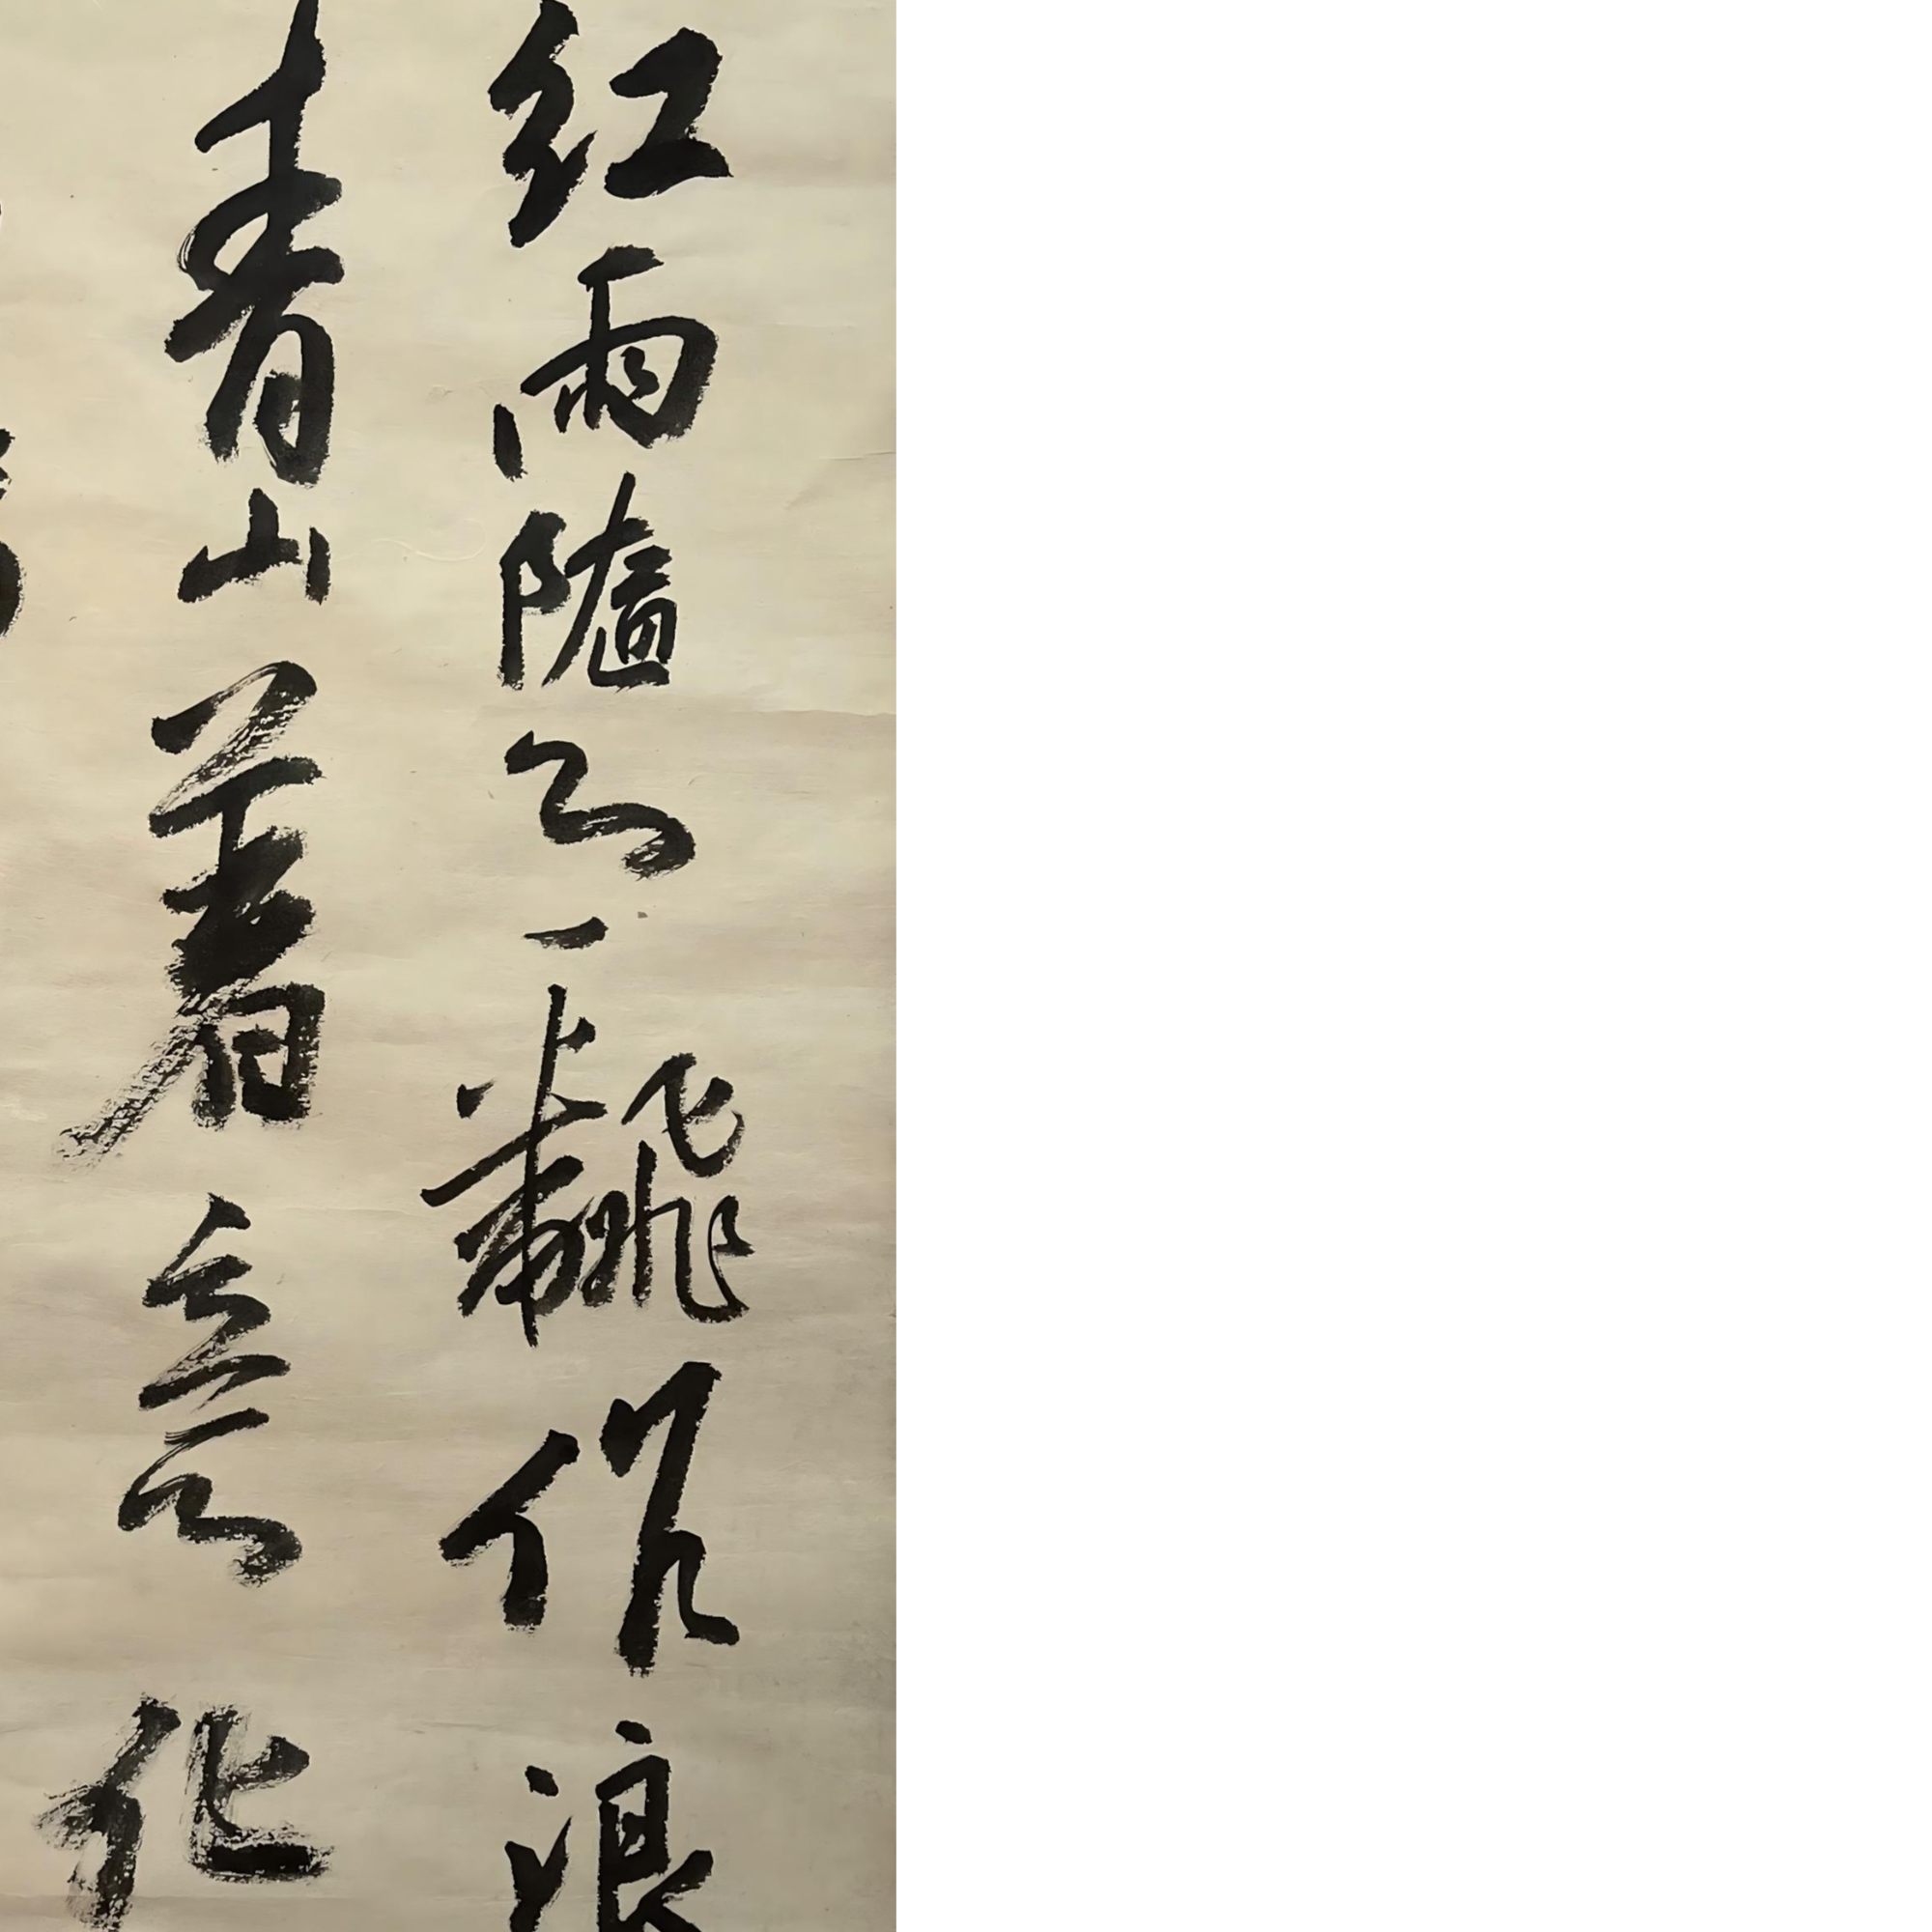 紅雨隨心飜作浪
青山著意化